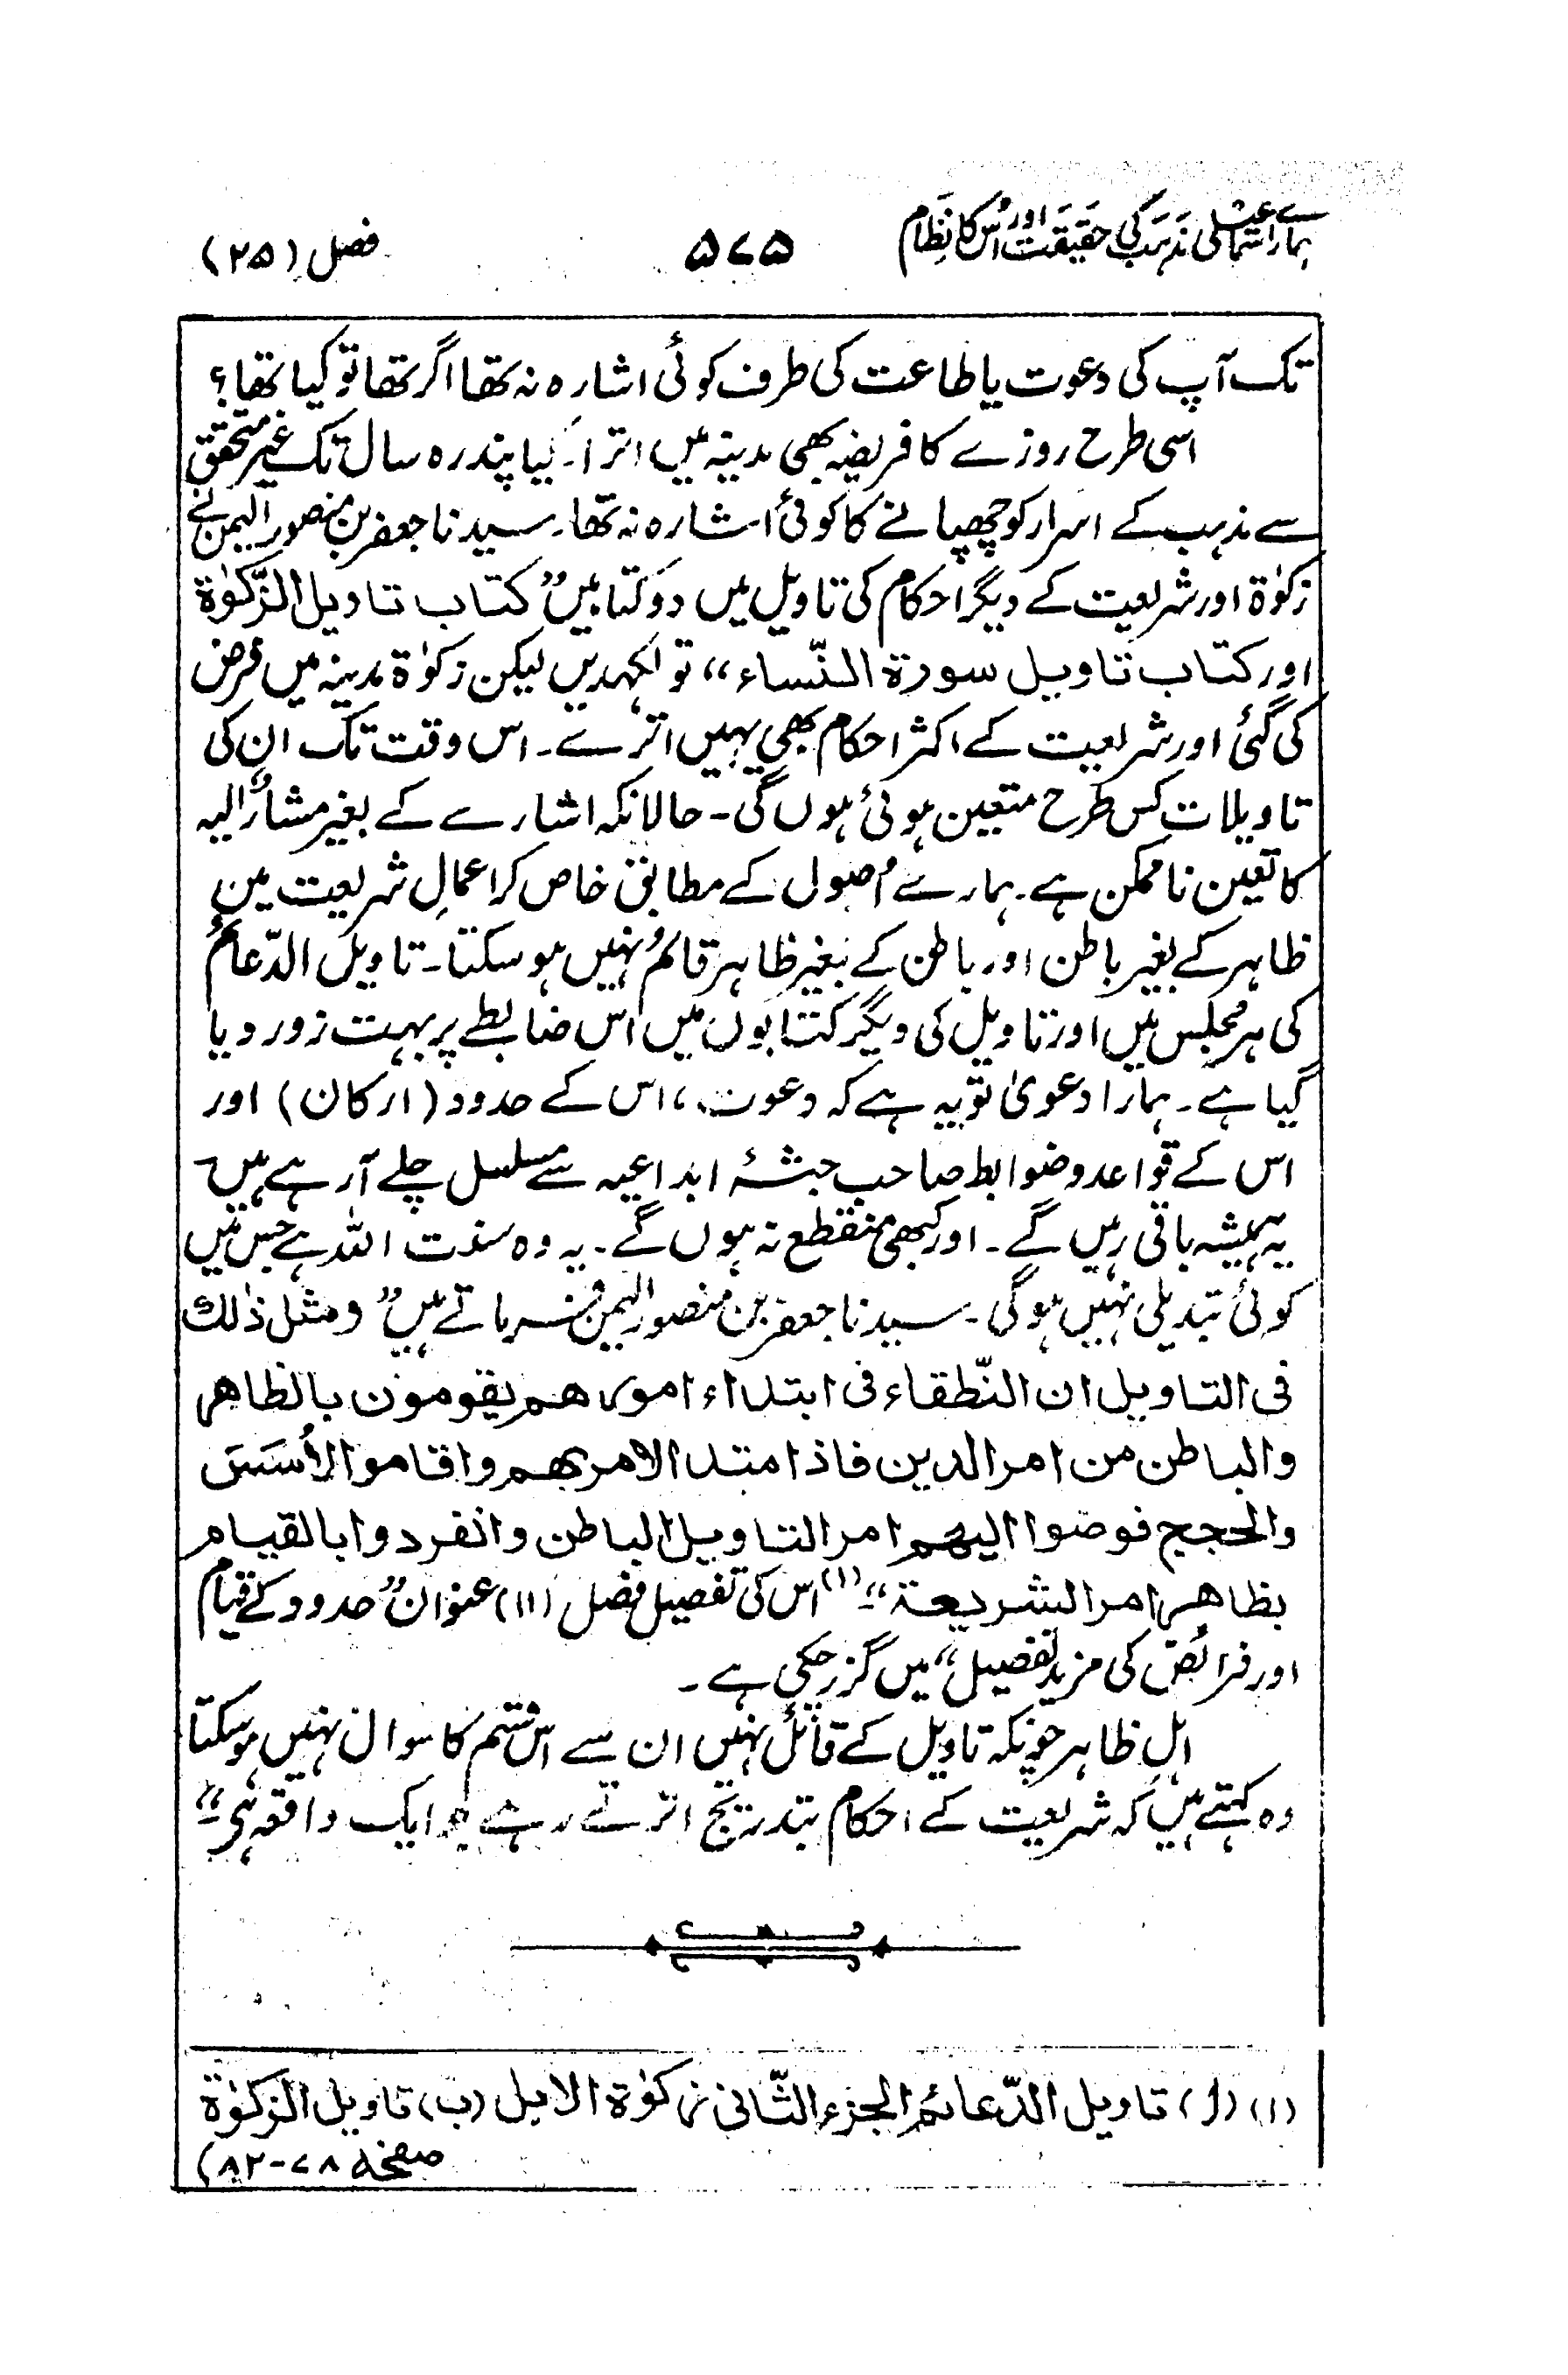 ہمارے اسماعیلی مذہب کی حقیقت اور اُس کا نظام
۵۷۵
فصل (۲۵)
تک آپ کی دعوت یا طاعت کی طرف کوئی اشارہ نہ تھا اگر تھا تو کیا تھا؟
اسی طرح روزے کا فریضہ بھی مدینہ میں اترا۔ کیا پندرہ سال تک غیر متحقق
سے مذہب کے اسرار کو چھپانے کا کوئی اشارہ نہ تھا۔ سیدنا جعفر بن منصور الیمن نے
زکوٰۃ اور شریعت کے دیگر احکام کی تاویل میں دو کتابیں ”کتاب تاویل الزّکوٰۃ
اور کتاب تاویل سورۃ النّساء“ تو لکھدیں لیکن زکوٰۃ مدینہ میں فرض
کی گئی اور شریعت کے اکثر احکام بھی یہیں اترے۔ اس وقت تک ان کی
تاویلات کس طرح متعین ہوئی ہوں گی۔ حالانکہ اشارے کے بغیر مشارٌ الیہ
کا تعین ناممکن ہے۔ ہمارے اصول کے مطابق خاص کر اعمالِ شریعت میں
ظاہر کے بغیر باطن اور باطن کے بغیر ظاہر قائم نہیں ہو سکتا۔ تاویل الدّعائم
کی ہر مجلس میں اور تاویل کی دیگر کتابوں میں اس ضابطے پر بہت زور دیا
گیا ہے۔ ہمارا دعویٰ تو یہ ہے کہ دعوت، اس کے حدود (ارکان) اور
اس کے قواعد و ضوابط صاحب جثۂ ابداعیہ سے مسلسل چلے آ رہے ہیں۔
یہ ہمیشہ باقی رہیں گے۔ اور کبھی منقطع نہ ہوں گے۔ یہ وہ سنت اللہ ہے جس میں
کوئی تبدیلی نہیں ہو گی۔ سیدنا جعفر بن منصور الیمن فرماتے ہیں ”ومثل ذٰلک
فی التاویل ان النّطقاء فی ابتداء امورھم یقومون بالظاھر
والباطن من امر الدین فاذا امتد الامر بھم واقاموا الأُسَسَ
والحجج فوضوا الیھم امر التاویل الباطن وانفردوا بالقیام
بظاھر امر الشریعۃ“۔(۱) اس کی تفصیل فصل (۱۱) عنوان ”حدود کے قیام
اور فرائض کی مزید تفصیل“ میں گزر چکی ہے۔
اہلِ ظاہر چونکہ تاویل کے قائل نہیں ان سے اس قسم کا سوال نہیں ہو سکتا
وہ کہتے ہیں کہ شریعت کے احکام بتدریج اترتے رہے جو ایک واقعہ ہی“۔
(۱) (ا) تاویل الدّعائم الجزء الثّانی زکوٰۃ الابل (ب) تاویل الزکوٰۃ
صفحہ ۷۸-۸۲)